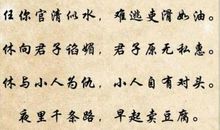 任你官清似水，难逃吏滑如油。
休向君子谄媚，君子原无私惠。
休与小人为仇，小人自有对头。
夜里千条路，早起卖豆腐。